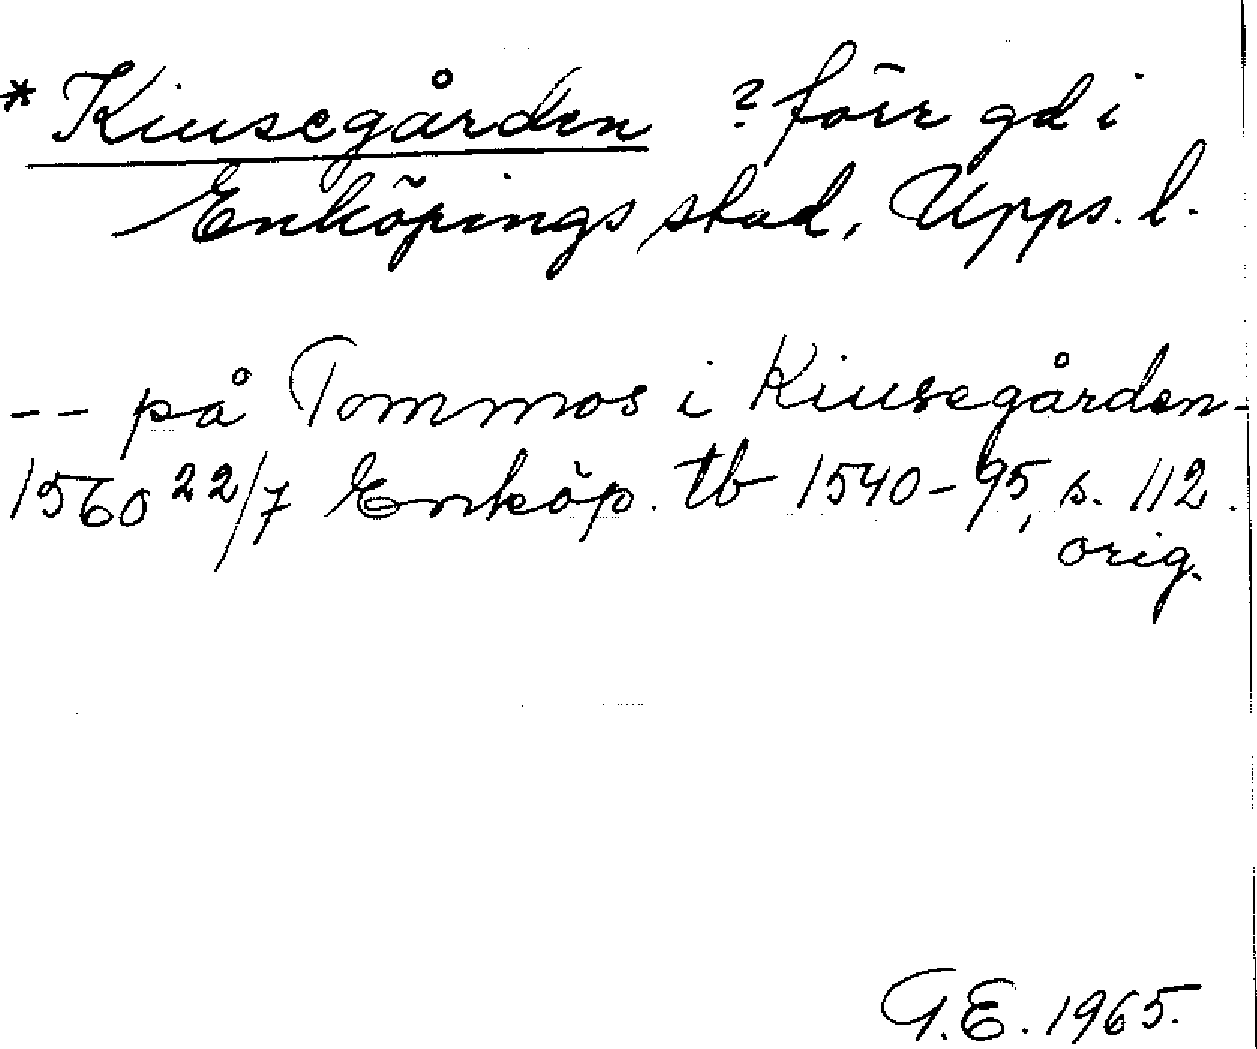 * Kiusegården ? förr gd i
Enköpings stad, Upps. l.
-- på Tommos i Kiusegården -
1560 22/7 Enköp. tb 1540-95, s. 112.
orig.
G.E. 1965.